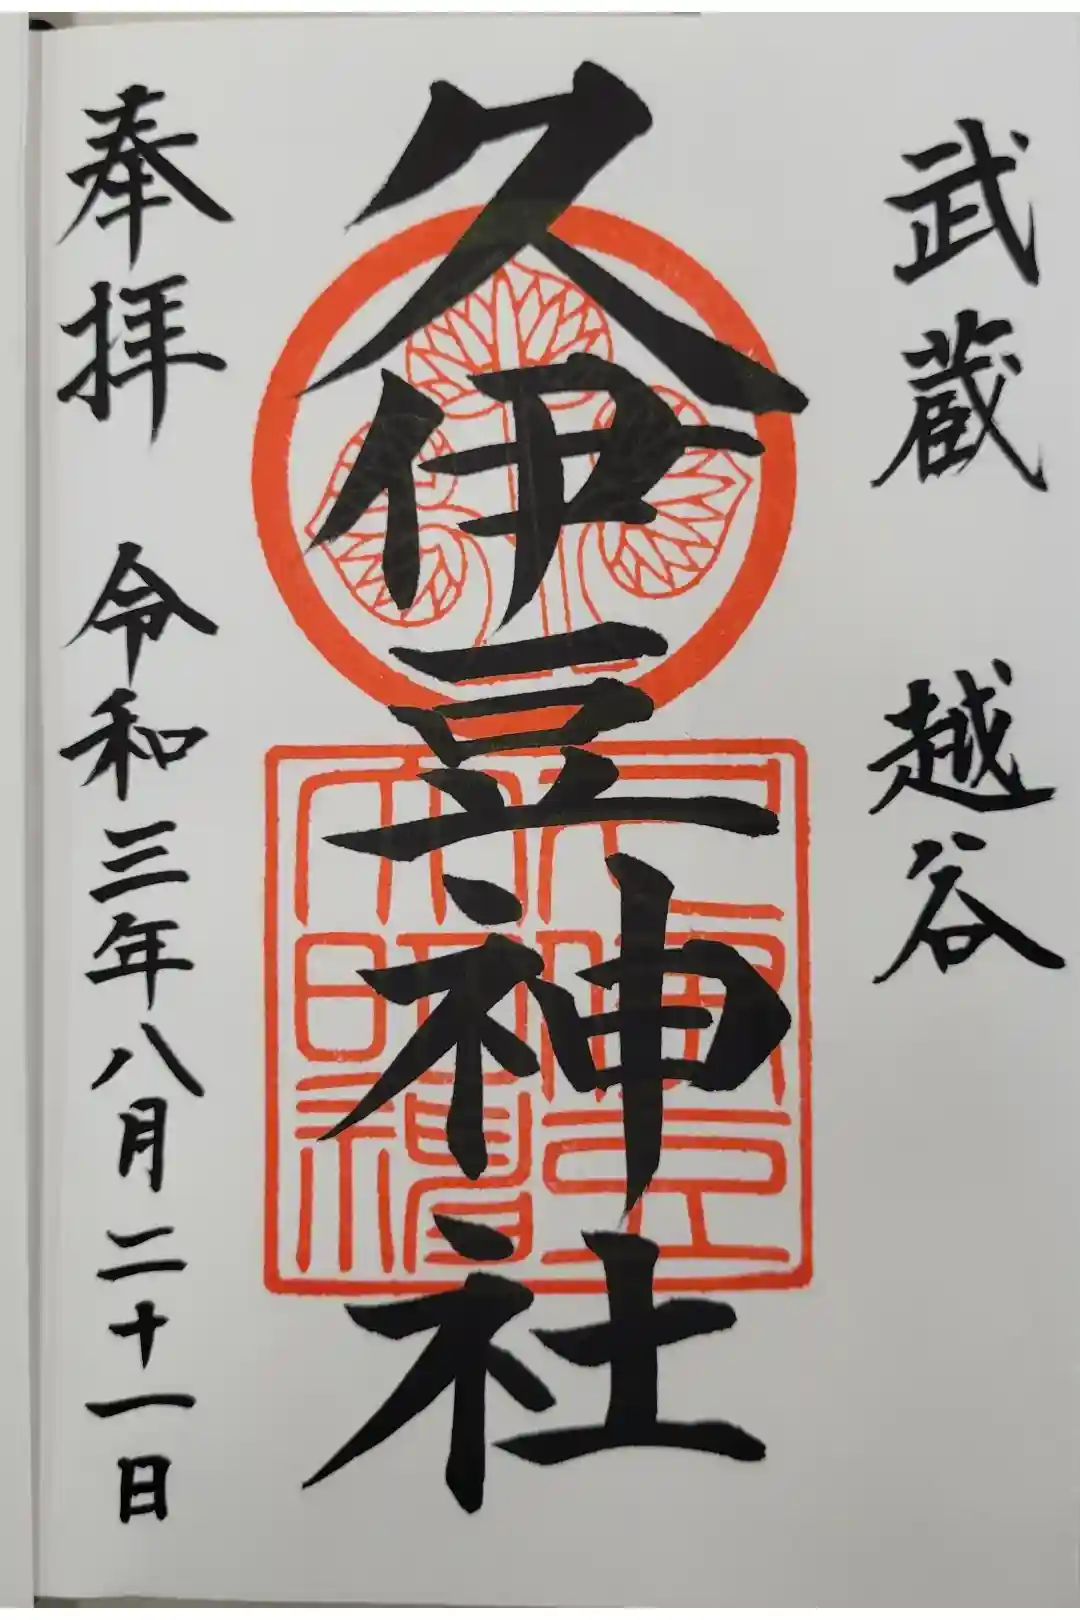 武蔵 越谷
久伊豆神社
奉拝 令和三年八月二十一日